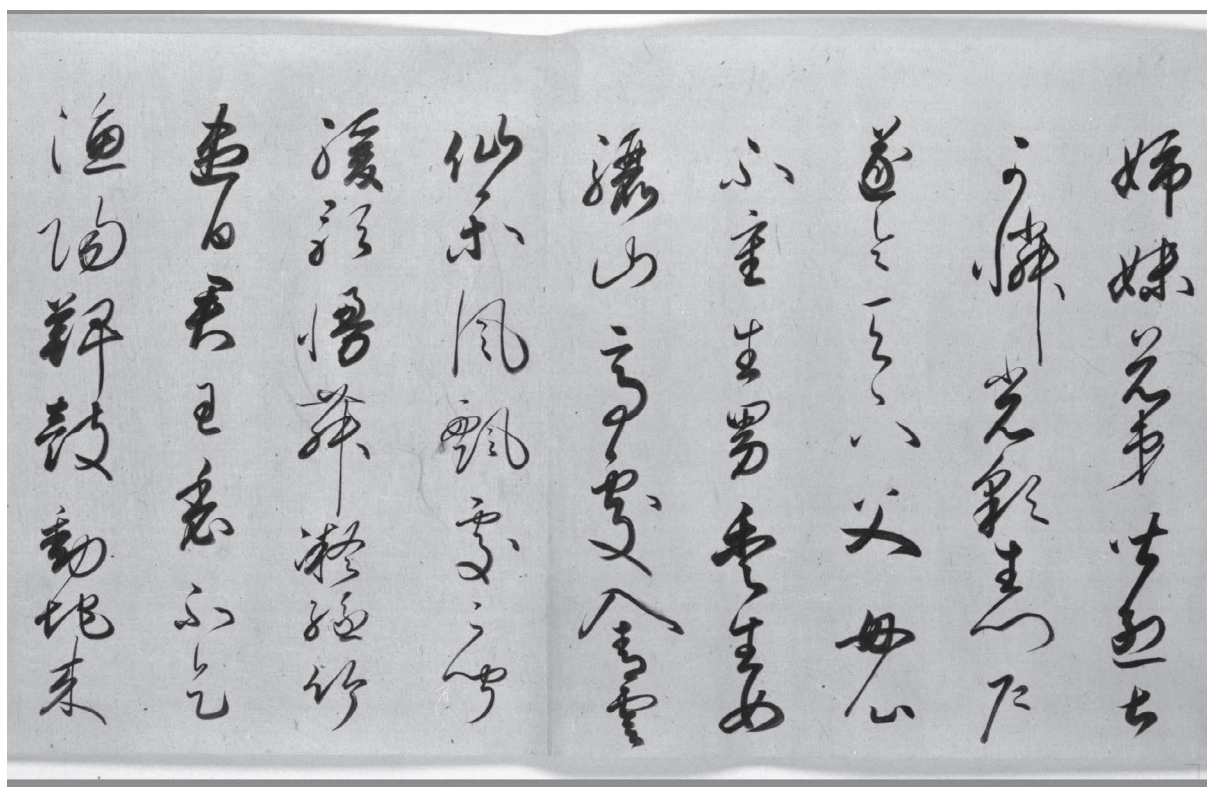 姉妹兄弟皆烈土
可憐光彩生門戸
遂令天下父母心
不重生男重生女
驪山高處入青雲
仙樂風飄處々聞
緩歌慢舞凝絲竹
盡日君王看不足
漁陽鼙鼓動地来